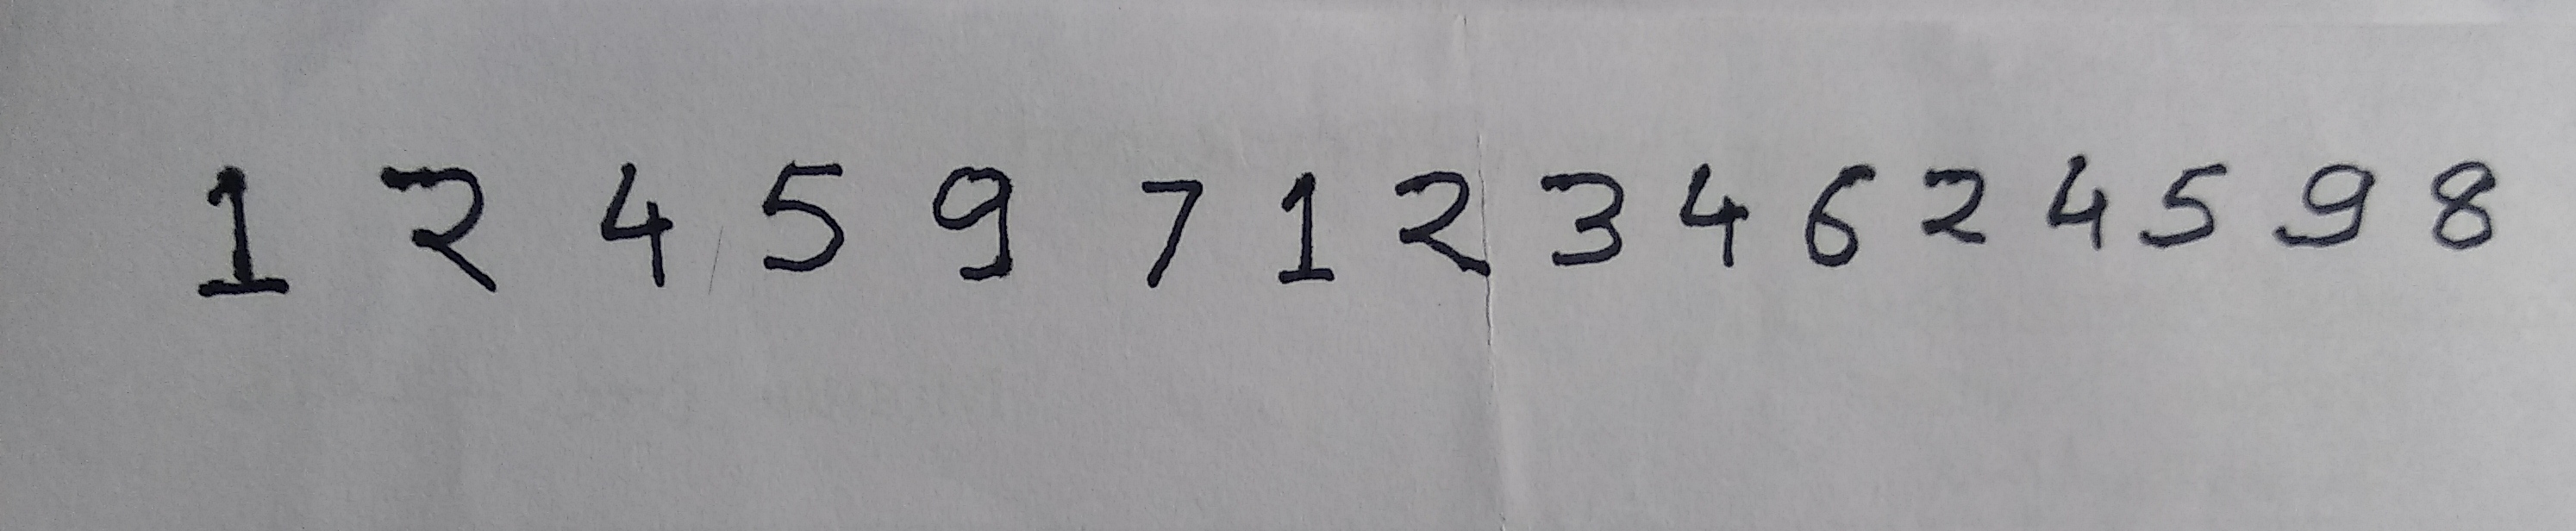 1 2 4 5 9 7 1 2 3 4 6 2 4 5 9 8